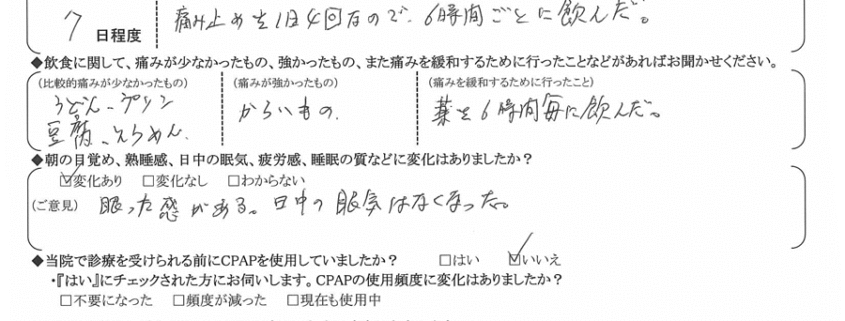 7 日程度
痛み止めを1日4回なので、6時間ごとに飲んだ。
◆飲食に関して、痛みが少なかったもの、強かったもの、また痛みを緩和するために行ったことなどがあればお聞かせください。
(比較的痛みが少なかったもの)
うどん、プリン
豆腐、そうめん、
(痛みが強かったもの)
からいもの、
(痛みを緩和するために行ったこと)
薬を6時間毎に飲んだ。
◆朝の目覚め、熟睡感、日中の眠気、疲労感、睡眠の質などに変化はありましたか?
☑変化あり □変化なし □わからない
(ご意見) 眠った感がある。日中の眠気はなくなった。
◆当院で診療を受けられる前にCPAPを使用していましたか? □はい ☑いいえ
・『はい』にチェックされた方にお伺いします。CPAPの使用頻度に変化はありましたか?
□不要になった □頻度が減った □現在も使用中